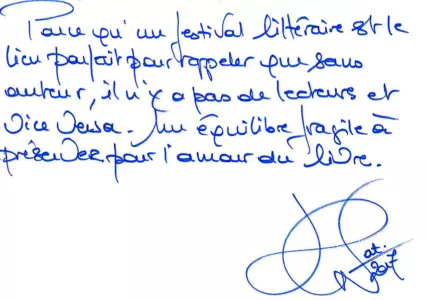 Parce qu'un festival littéraire est le
lieu parfait pour rappeler que sans
auteur, il n'y a pas de lecteurs et
vice versa. Un équilibre fragile à
préserver pour l'amour du livre.
at.
2017